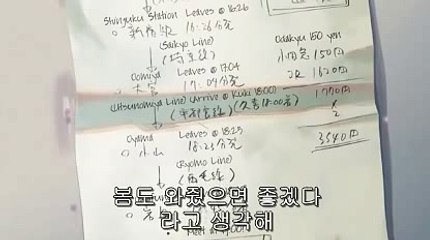 Shinjuku Station Leaves @ 16:26
新宿駅 16:26分発
(Saikyo Line)
(埼京線)
Oomiya Leaves @ 17:04
大宮 17:04分発
(Utsunomiya Line) (Arrive @ Kuki 18:00)
(宇都宮線) (久喜18:00着)
Oyama Leaves @ 18:25
小山 18:25分発
(Ryomo Line)
(両毛線)
Odakyu 150 yen
小田急 150円
JR 1620円
1770円
2
3540円
봄도 와줬으면 좋겠다
라고 생각해